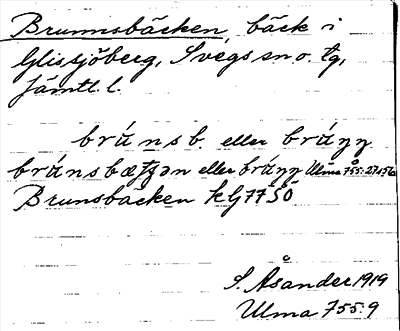 Brunnsbäcken, bäck i
Glissjöberg, Svegs sn o. tg,
Jämtl. l.
brú n s b. eller brúnn
brúnsbæƫʒən eller brúnn Ulma 755:27 s 56
Brunsbacken kG77SO
S. Åsander 1919
Ulma 755:9